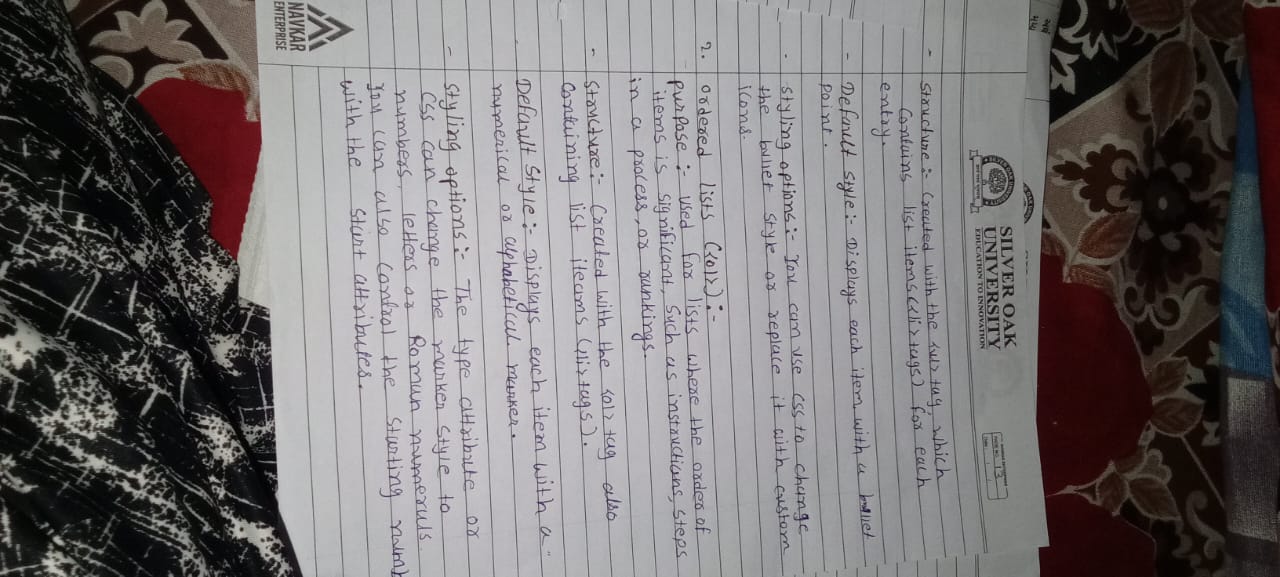 SILVER OAK
UNIVERSITY
EDUCATION TO INNOVATION
13
- Structure :- Created with the <ul> tag, which
contains list items (<li> tags) for each
entry.
- Default style :- Displays each item with a bullet
point.
- styling options :- You can use CSS to change
the bullet style or replace it with custom
icons.
2. ordered lists (<ol>) :-
purpose :- Used for lists where the orders of
items is significant, such as instructions, steps
in a process, or rankings.
- Structure :- Created with the <ol> tag also
containing list iteams (<li> tags).
Default Style :- Displays each item with a
numerical or alphabetical marker.
- Styling options :- The type attribute or
CSS can change the marker style to
numbers, letters or Roman numerals.
You can also control the starting
with the start attributes.
NAVKAR
ENTERPRISE